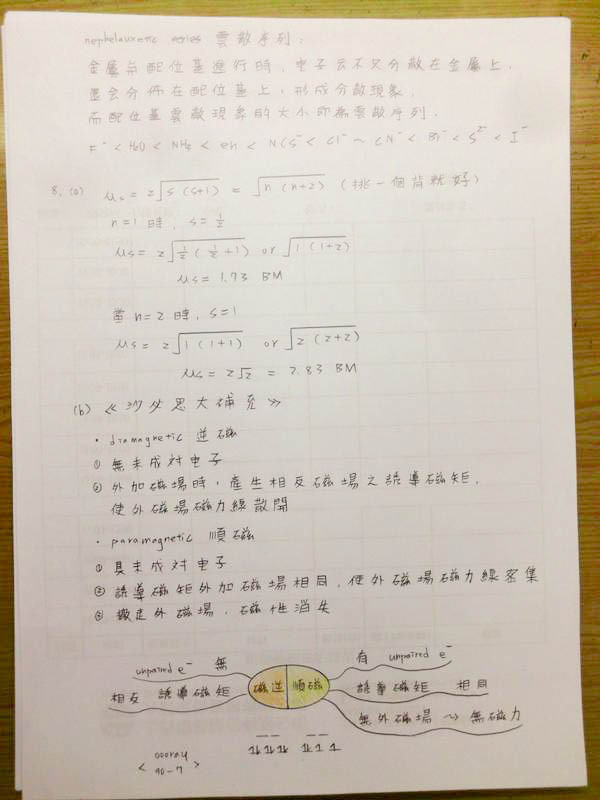 nephelauxetic series 雲散序列:
金屬和配位基進行時,电子云不只分散在金屬上,
還会分佈在配位基上,形成分散現象,
而配位基雲散現象的大小即為雲散序列.
F⁻ < H₂O < NH₃ < en < NCS⁻ < Cl⁻ ~ CN⁻ < Br⁻ < S²⁻ < I⁻
8. (a) μs = 2√s(s+1) = √n(n+2) (挑一個背就好)
n=1 時, s=½
μs = 2√½(½+1) or √1(1+2)
μs = 1.73 BM
當 n=2 時, s=1
μs = 2√1(1+1) or √2(2+2)
μs = 2√2 = 2.83 BM
(b) 《沙必思大補充》
• diamagnetic 逆磁
① 無未成対电子
② 外加磁場時,產生相反磁場之誘導磁矩,
使外磁場磁力線散開
• paramagnetic 順磁
① 具未成対电子
② 誘導磁矩外加磁場相同,使外磁場磁力線密集
③ 撤走外磁場,磁性消失
unpaired e⁻ 無
有 unpaired e⁻
相反 誘導磁矩
磁逆 順磁
誘導磁矩 相同
無外磁場 ~> 無磁力
< ooray
90-7 >